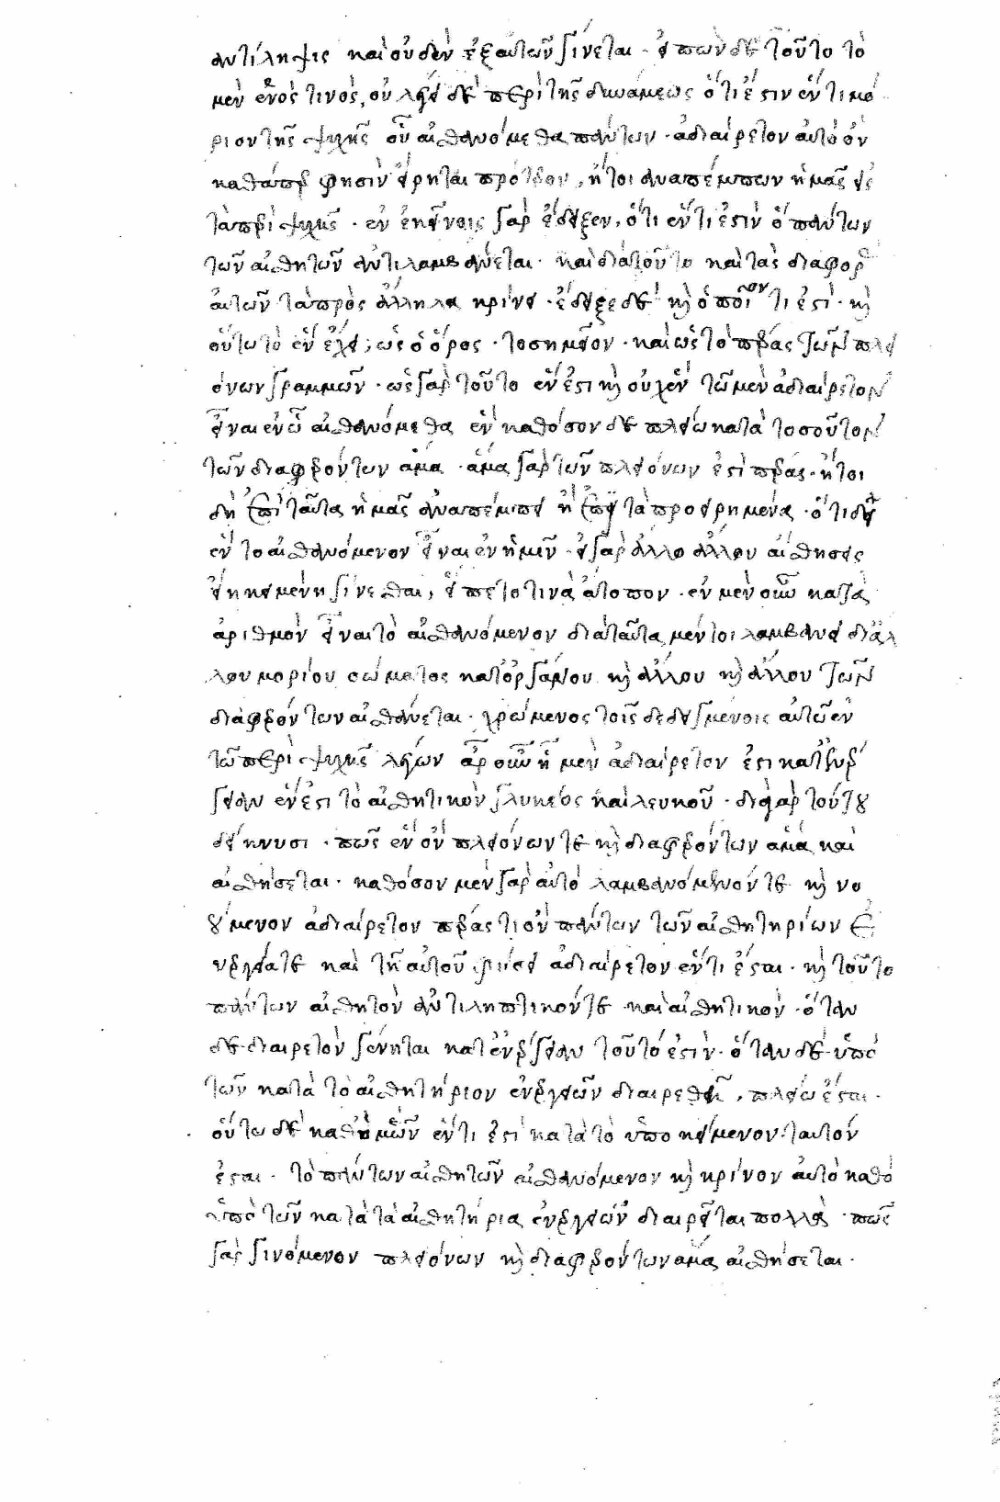 ἀντίληψις καὶ οὐδὲν ἐξ αὐτῶν γίνεται· εἰπὼν δὲ τοῦτο τὸ
μὲν ἑνός τινος, οὐ λέγει δὲ περὶ τῆς δυνάμεως ὅτι ἔστιν ἕν τι μό
ριον τῆς ψυχῆς ᾧ αἰσθανόμεθα πάντων· ἀδιαίρετον αὐτὸ ὂν
καθάπερ φησὶν εἴρηται πρότερον, ἤτοι ἀναπέμπων ἡμᾶς εἰς
τὰ περὶ ψυχῆς· ἐν ἐκείνοις γὰρ ἔδειξεν, ὅτι ἕν τι ἐστὶν ὃ πάντων
τῶν αἰσθητῶν ἀντιλαμβάνεται· καὶ διὰ τοῦτο καὶ τὰς διαφορὰς
αὐτῶν τὰ πρὸς ἄλληλα κρίνει· ἔδειξε δὲ καὶ ὁποῖόν τι ἐστί· καὶ
οὕτω τὸ ἓν ἔχει, ὡς ὁ ὅρος· τὸ σημεῖον· καὶ ὡς τὸ πέρας τῶν πλει
όνων γραμμῶν· ὡς γὰρ τοῦτο ἕν ἐστι καὶ οὐχ ἓν τῷ μὲν ἀδιαίρετον
εἶναι ἐν ᾧ αἰσθανόμεθα ἓν καθόσον δὲ πλείω κατὰ τοσοῦτον
τῶν διαφερόντων ἅμα· ἅμα γὰρ τῶν πλειόνων ἐστὶ πέρας· ἤτοι
δὴ ἐπὶ ταῦτα ἡμᾶς ἀναπέμπει ἢ ἐπὶ τὰ προειρημένα· ὅτι δεῖ
ἓν τὸ αἰσθανόμενον εἶναι ἐν ἡμῖν· εἰ γὰρ ἄλλο ἄλλου αἴσθησις
ἐκειμένη γίνεσθαι, εἵπετό τινα ἄτοπον· ἓν μὲν οὖν κατὰ
ἀριθμὸν εἶναι τὸ αἰσθανόμενον διὰ ταῦτα, μέντοι λαμβάνει δι᾽ ἄλ
λου μορίου σώματος κατ᾽ ὀργάνου καὶ ἄλλου καὶ ἄλλου τῶν
διαφερόντων αἰσθάνεται· χρώμενος τοῖς δεδειγμένοις αὐτῷ ἐν
τῷ περὶ ψυχῆς λέγων ἆρ᾽ οὖν ᾗ μὲν ἀδιαίρετόν ἐστι κατ᾽ ἐνέρ
γειαν ἕν ἐστι τὸ αἰσθητικὸν γλυκέος καὶ λευκοῦ· διὰ γὰρ τούτου
δείκνυσι· πῶς ἓν ὂν πλειόνων τε καὶ διαφερόντων ἅμα καὶ
αἰσθήσεται· καθόσον μὲν γὰρ αὐτὸ λαμβανόμενόν τε καὶ νο
ούμενον ἀδιαίρετον πέρας τι ὂν πάντων τῶν αἰσθητηρίων ἐ
νεργείᾳ τε καὶ τῇ αὐτοῦ φύσει ἀδιαίρετον ἕν τι ἔσται· καὶ τοῦτο
πάντων αἰσθητὸν ἀντιληπτικόν τε καὶ αἰσθητικόν· ὅταν
δὲ διαιρετὸν γένηται κατ᾽ ἐνέργειαν τοῦτό ἐστιν· ὅταν δὲ ὑπὸ
τῶν κατὰ τὸ αἰσθητήριον ἐνεργειῶν διαιρεθῇ, πλείω ἔσται·
οὕτω δὲ καθ᾽ ὃ μὲν ἕν τι ἐστὶ κατὰ τὸ ὑποκείμενον ταυτόν
ἔσται· τὸ πάντων αἰσθητῶν αἰσθανόμενον καὶ κρῖνον αὐτὸ καθὸ
ὑπὸ τῶν κατὰ τὰ αἰσθητήρια ἐνεργειῶν διαιρεῖται πολλά· πῶς
γὰρ γινόμενον πλειόνων καὶ διαφερόντων ἅμα αἰσθήσεται·